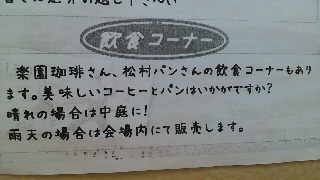 飲食コーナー
楽園珈琲さん、松村パンさんの飲食コーナーもあり
ます。美味しいコーヒーとパンはいかがですか?
晴れの場合は中庭に!
雨天の場合は会場内にて販売します。